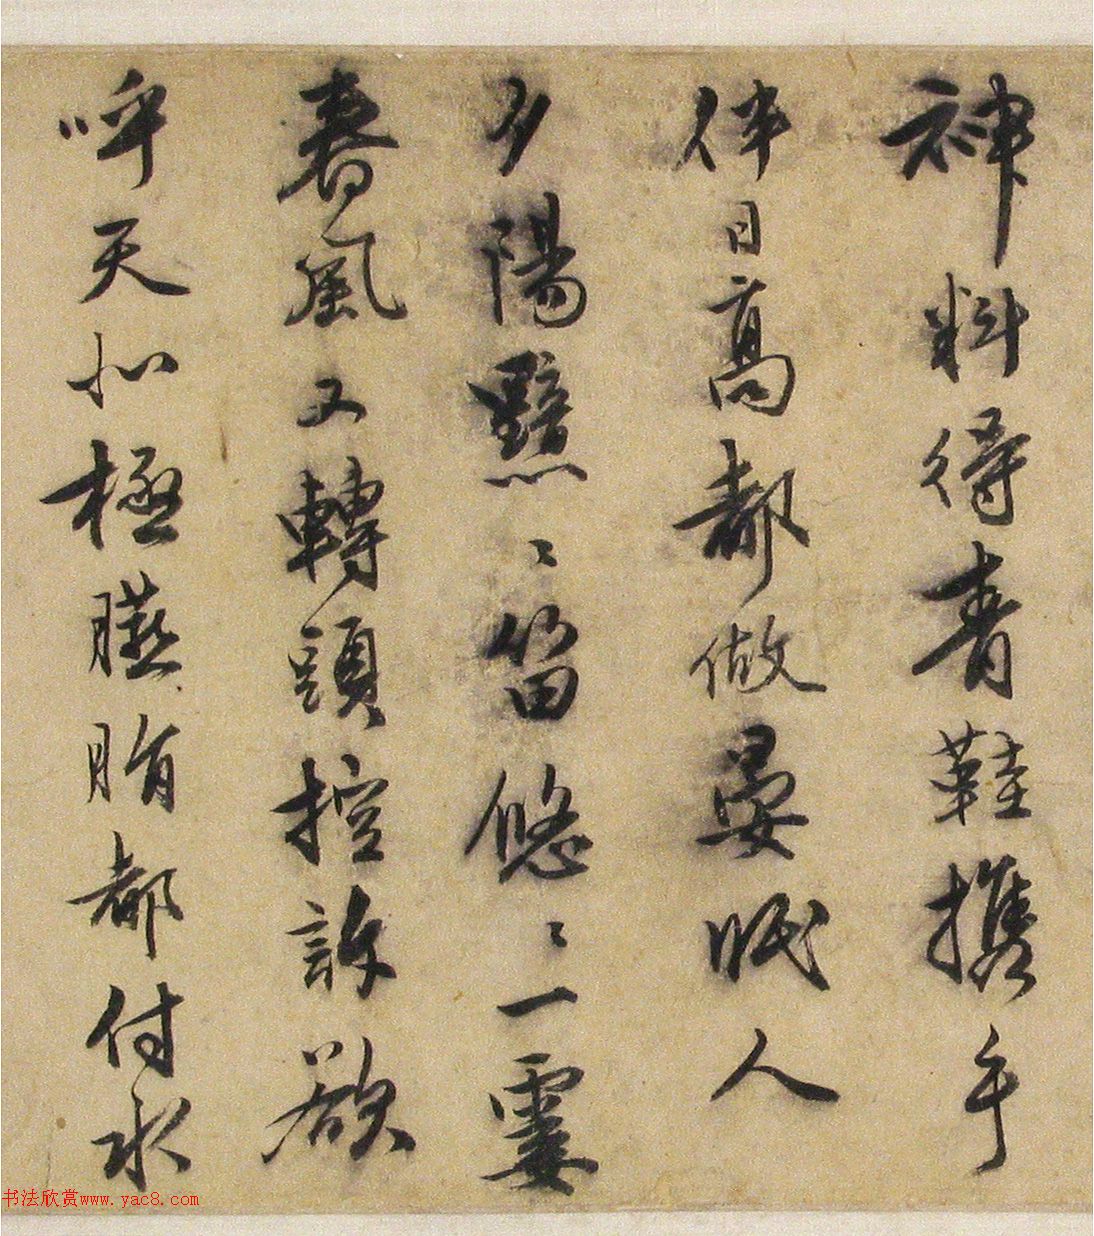 神料得青鞋携手
伴日高都做晏眠人
夕陽黯〻笛悠〻一霎
春風又轉頭控訴欲
呼天北極臙脂都付水
书法欣赏www.yac8.com